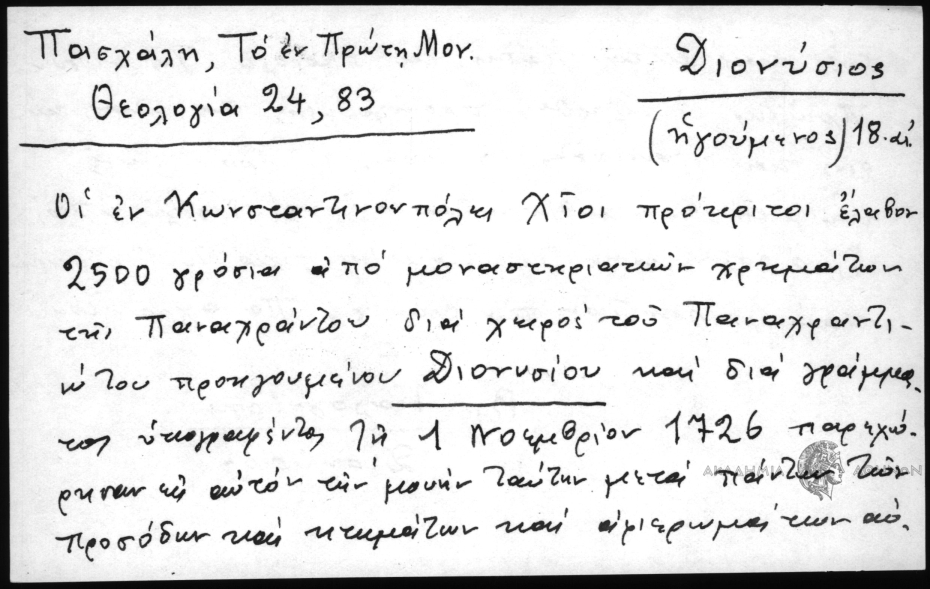 Πασχάλη, Τό ἐν Πρώτῃ Μον.
Θεολογία 24, 83
Διονύσιος
(ἡγούμενος) 18. αἰ.
Οἱ ἐν Κωνσταντινουπόλει Χῖοι πρόκριτοι ἔλαβον
2500 γρόσια ἀπό μοναστηριακῶν χρημάτων
τῆς Παναχράντου διά χειρός τοῦ Παναχραντι-
ώτου προηγουμένου Διονυσίου καί διά γράμμα-
τος ὑπογραφέντος τῇ 1 Νοεμβρίου 1726 παρεχώ-
ρησαν εἰς αὐτόν τήν μονήν ταύτην μετά πάντων τῶν
προσόδων καί κτημάτων καί ἀφιερωμάτων αὐ-
ΑΚΑΔΗΜΙΑ ΑΘΗΝΩΝ